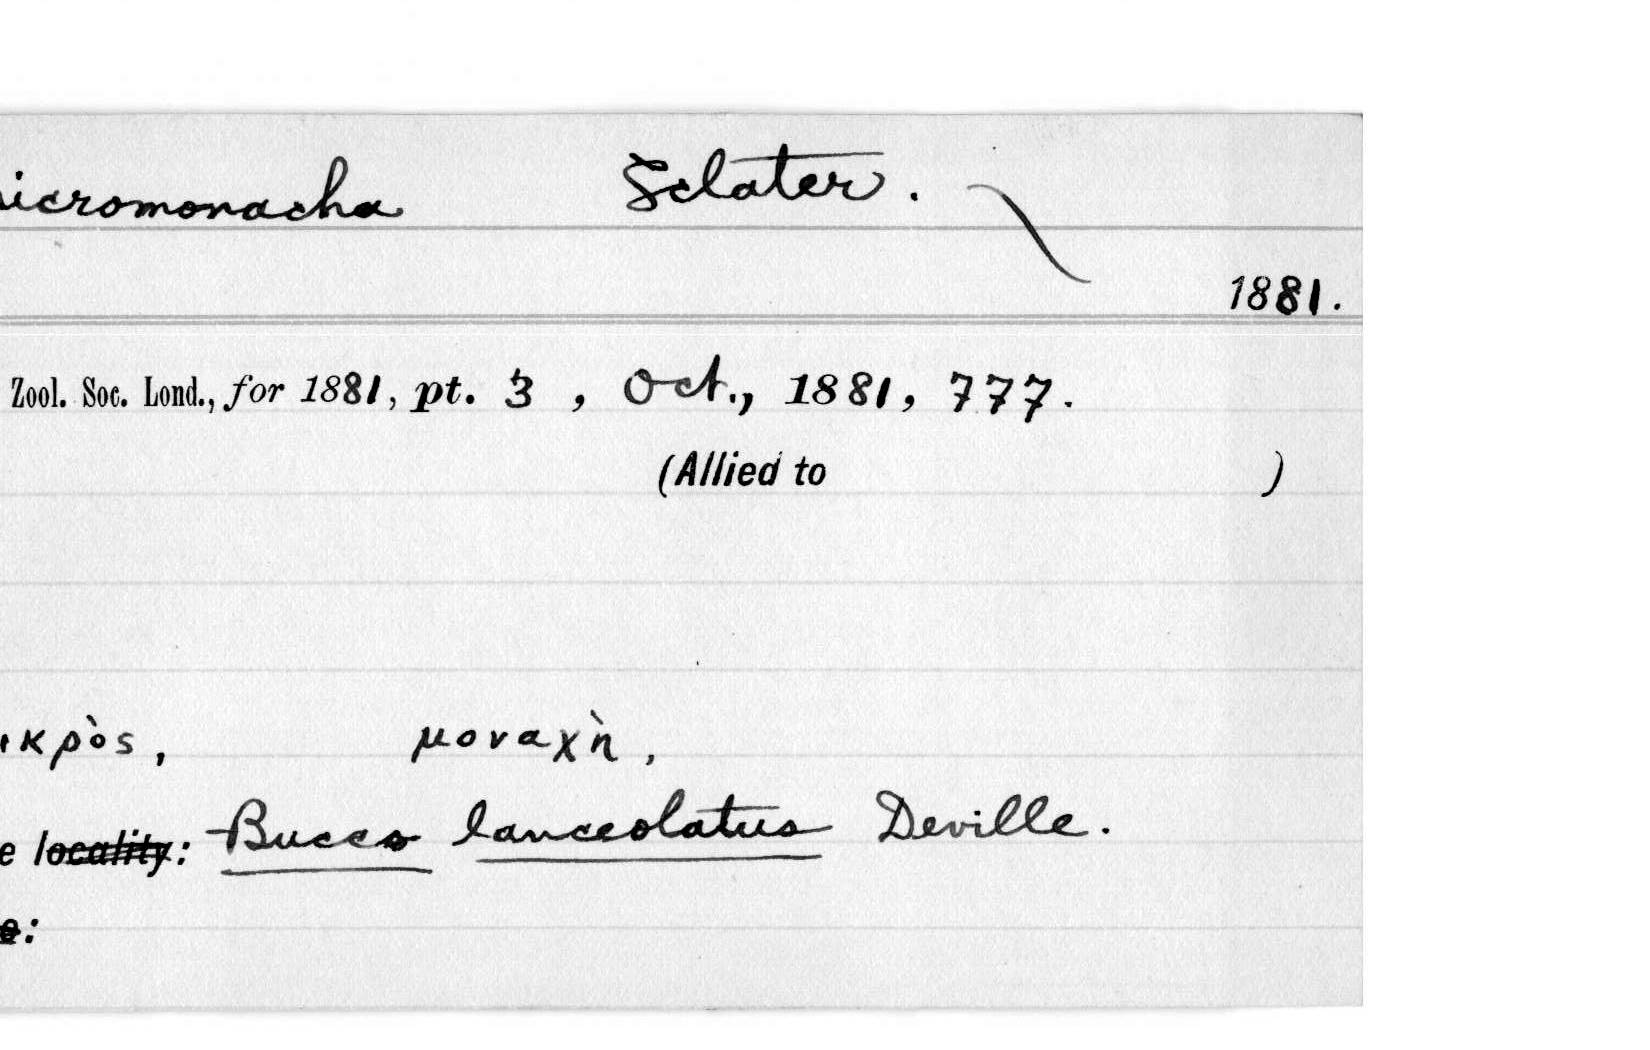 icromonacha Sclater.
1881.
Zool. Soc. Lond., for 1881, pt. 3, Oct., 1881, 777.
(Allied to )
ικρὸς, μοναχὴ,
e locality: Bucco lanceolatus Deville.
e: